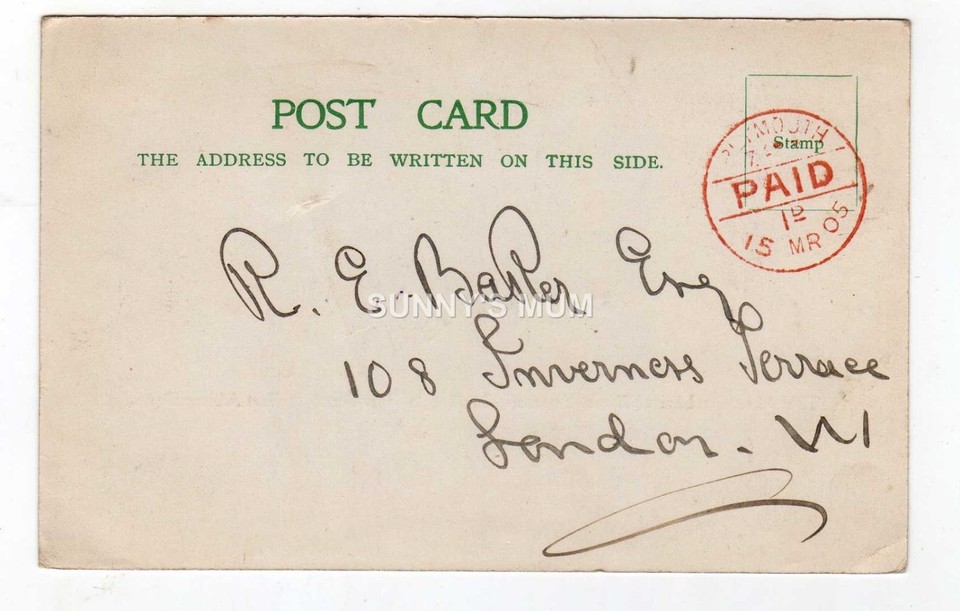 POST CARD
THE ADDRESS TO BE WRITTEN ON THIS SIDE.
Stamp
PLYMOUTH
PAID
1D
15 MR 05
R. E. Baker Esq
SUNNY'S MUM
108 Inverness Terrace
London. W